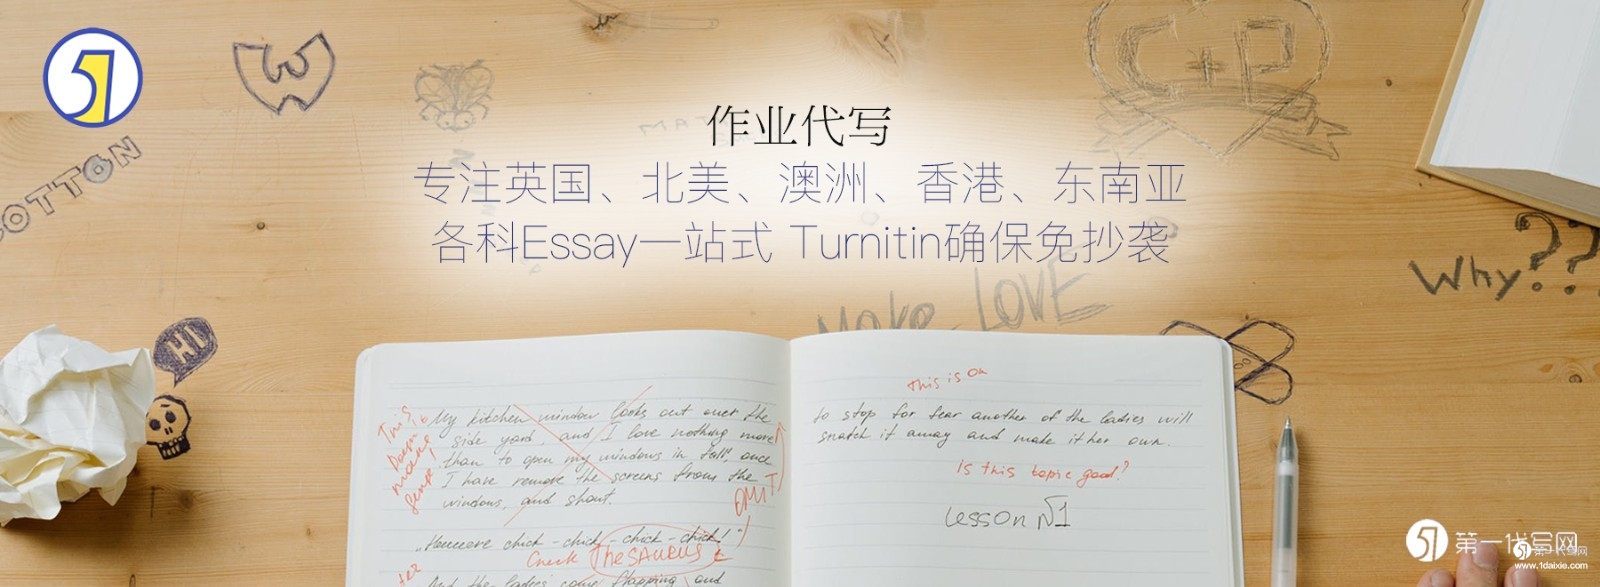 51
作业代写
专注英国、北美、澳洲、香港、东南亚
各科Essay一站式 Turnitin确保免抄袭
COTTON
W
C+P
Why???
Make LOVE
HI
This is
My kitchen window looks out over the
side yard, and I love nothing more
than to open my windows in fall, once
I have remove the screens from the
windows, and shout.
OMIT
„Heeeere chick-chick-chick-chick!"
Check Thesaurus
And the ladies come flapping and
This is ok
to stop for fear another of the ladies will
snatch it away and make it her own.
Is this topic good?
Lesson №1
51 第一代写网
51 第一代写网
www.1daixie.com